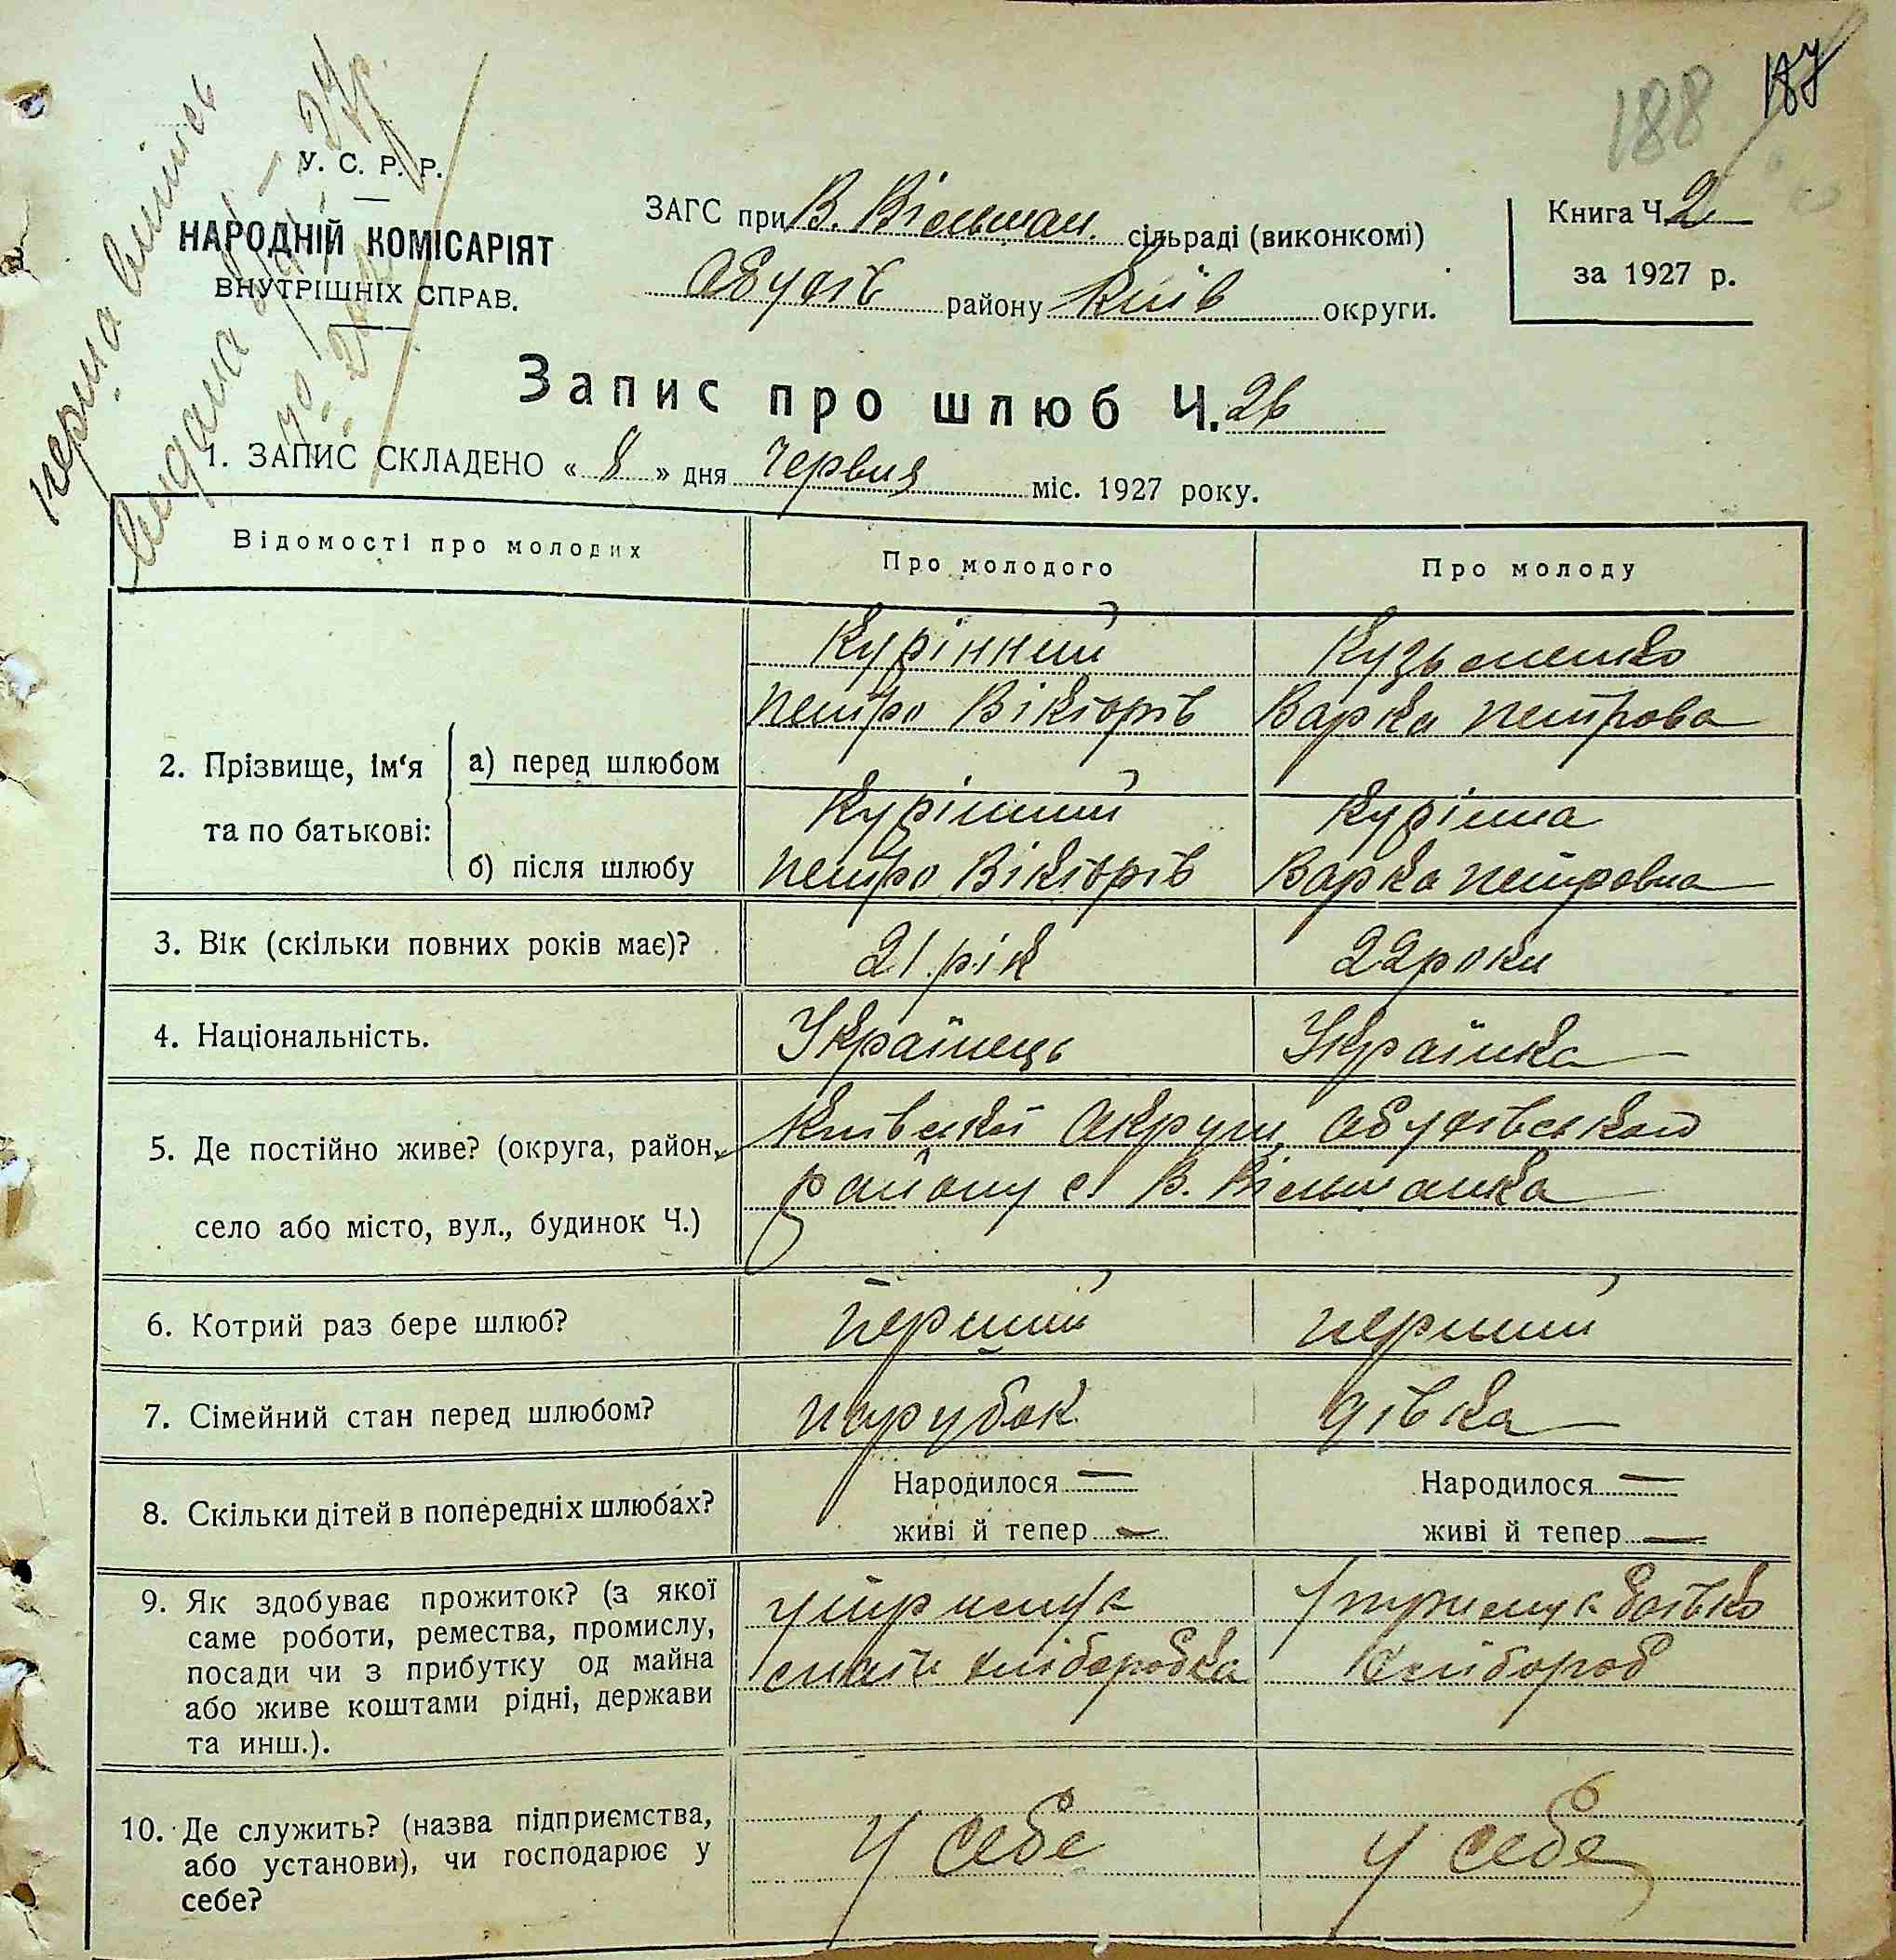 188 187
У. С. Р. Р.
НАРОДНІЙ КОМІСАРІЯТ
ВНУТРІШНІХ СПРАВ.
перша випись
видана
ЗАГС при В. Вільшан. сільраді (виконкомі)
Обухів району Київ округи.
Книга Ч. 2
за 1927 р.
Запис про шлюб Ч. 26
1. ЗАПИС СКЛАДЕНО « 8 » дня Червня міс. 1927 року.
Відомості про молодих Про молодого Про молоду
Курінний Кузьменко
Петро Вікторів Варка Петрова
2. Прізвище, ім'я та по батькові:
а) перед шлюбом
Курінний Курінна
б) після шлюбу Петро Вікторів Варка Петровна
3. Вік (скільки повних років має)? 21 рік 22 роки
4. Національність. Українець Українка
5. Де постійно живе? (округа, район, село або місто, вул., будинок Ч.)
Київської Округи, Обухівського
району с. В. Вільшанка
6. Котрий раз бере шлюб? перший перший
7. Сімейний стан перед шлюбом? парубок дівка
8. Скільки дітей в попередніх шлюбах? Народилося — Народилося —
живі й тепер — живі й тепер —
9. Як здобуває прожиток? (з якої
саме роботи, ремества, промислу,
посади чи з прибутку од майна
або живе коштами рідні, держави
та инш.).
хлібороб
10. Де служить? (назва підприємства,
або установи), чи господарює у
себе?
У себе У себе